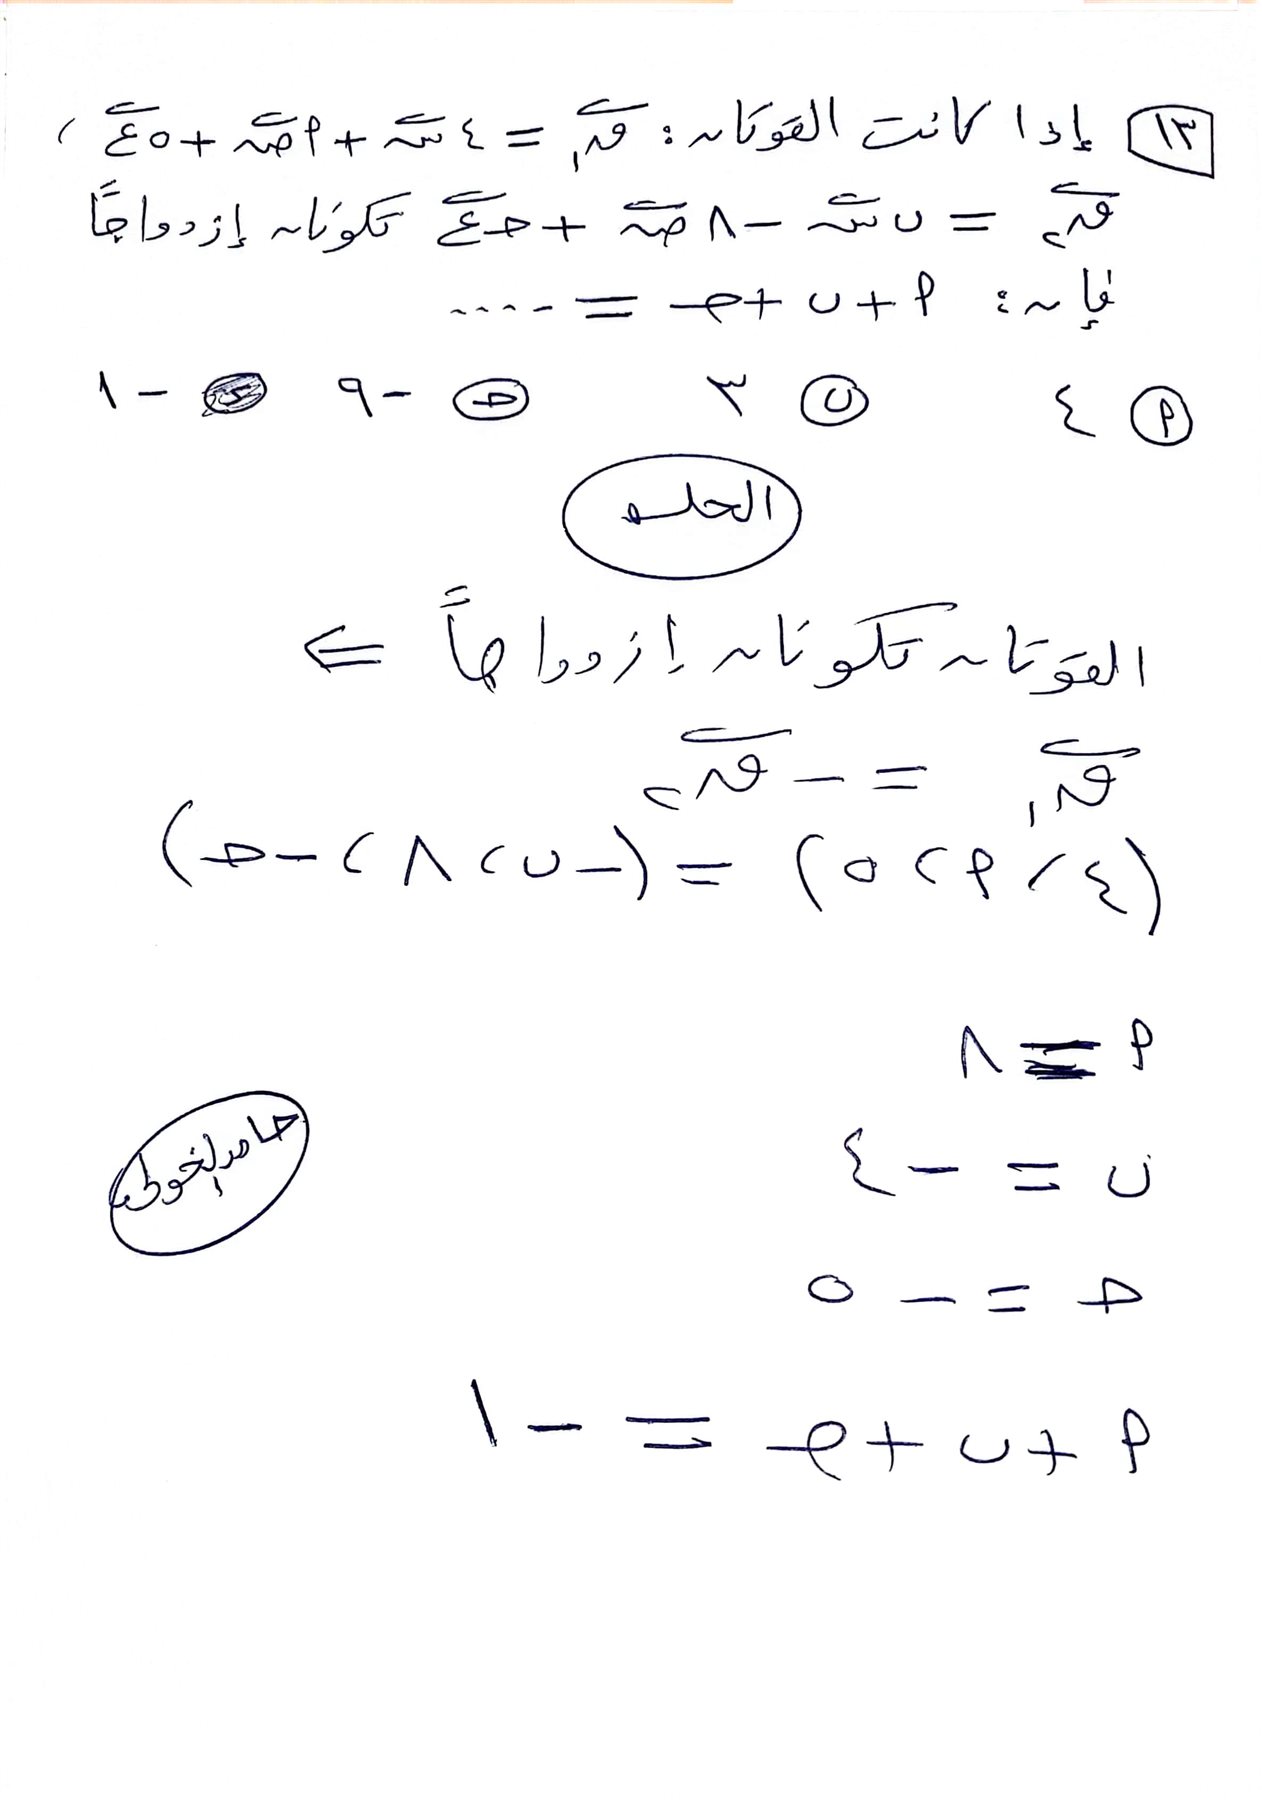 ١٣ إذا كانت القوتان: ق١ = ٤ س + ٩ ص + ٥ ع ،
ق٢ = ب س - ٨ ص + حـ ع تكونان إزدواجاً
فإن: ٩ + ب + حـ = ....
٩ ٤ ب ٣ حـ -٩ ء -١
الحل
القوتان تكونان إزدواجاً ⇐
ق١ = - ق٢
(٤ ، ٩ ، ٥) = (-ب ، ٨ ، -حـ)
٩ = ٨
ب = -٤
حـ = -٥
٩ + ب + حـ = -١